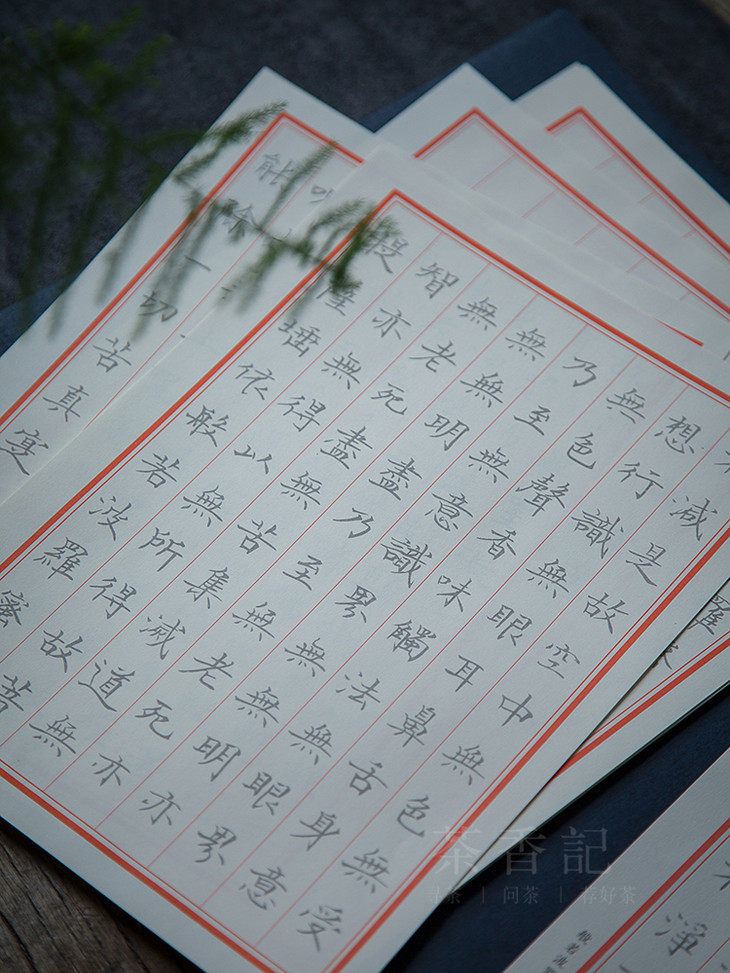 減是故空中無色無受
想行識無眼耳鼻舌身意
無色聲香味觸法無眼界
乃至無意識界無無明亦
無無明盡乃至無老死亦
無老死盡無苦集滅道無
智亦無得以無所得故菩
提薩埵依般若波羅蜜
能除一切苦真寔
羅
淨
般若波
茶香記
寻茶 | 问茶 | 荐好茶